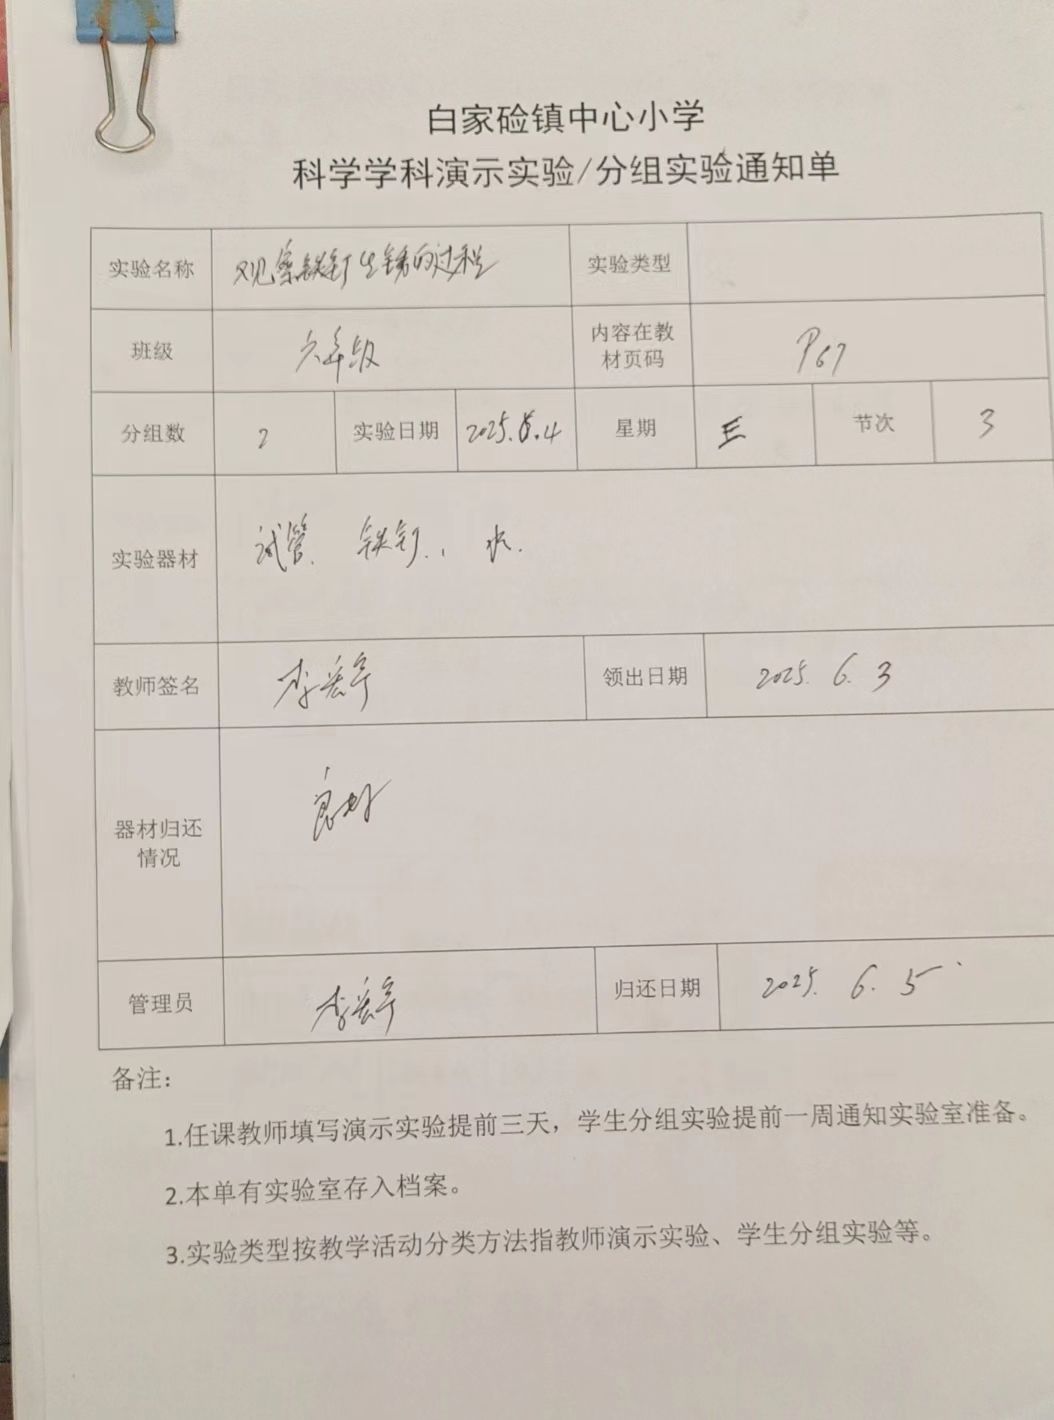 白家硷镇中心小学
科学学科演示实验/分组实验通知单
实验名称 观察铁钉生锈的过程 实验类型
班级 六年级 内容在教材页码 P67
分组数 2 实验日期 2025.6.4 星期 三 节次 3
实验器材 试管、铁钉、水.
教师签名 李 领出日期 2025. 6. 3
器材归还情况 良好
管理员 李 归还日期 2025. 6. 5
备注：
1.任课教师填写演示实验提前三天，学生分组实验提前一周通知实验室准备。
2.本单有实验室存入档案。
3.实验类型按教学活动分类方法指教师演示实验、学生分组实验等。